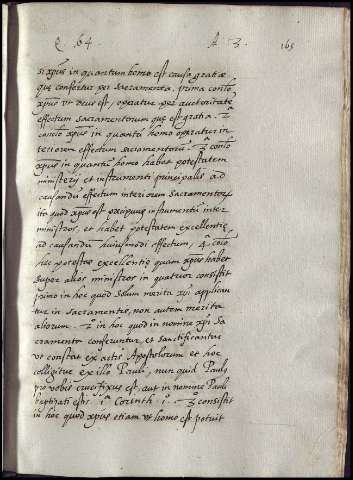 Q. 64. A. 3. 165
si xpus in quantum homo est causa gratiae
que confertur per sacramenta, prima conclo
xpus ut deus est, operatur per auctoritatē
effectum sacramentorum que est gratia. 2ª
conclo xpus in quantū homo operatur in
teriorem effectum sacramentorū. 3ª conclo
xpus in quantū homo habet potestatem
ministerij et instrumenti principalis ad
causandū effectum interiorem sacramentorū
ita quod xpus est precipuus instrumentū inter
ministros, et habet potestatem excellentie,
ad causandū huiusmodi effectum, 4ª conclo
hec potestas excellentie quam xpus habet
super alios ministros in quatuor consistit
primo in hoc quod solum merita xpi applican
tur in sacramentis, non autem merita
aliorum. 2º in hoc quod in nomine xpi sa
cramenta conferuntur, et sanctificantur
ut constat ex actis Apostolorum et hoc
colligitur ex illo Pauli, nun quid Paulus
pro vobis crucifixus est, aut in nomine Pauli
baptizati estis. 1ª Corinth. 1. 3º consistit
in hoc quod xpus etiam ut homo est potuit